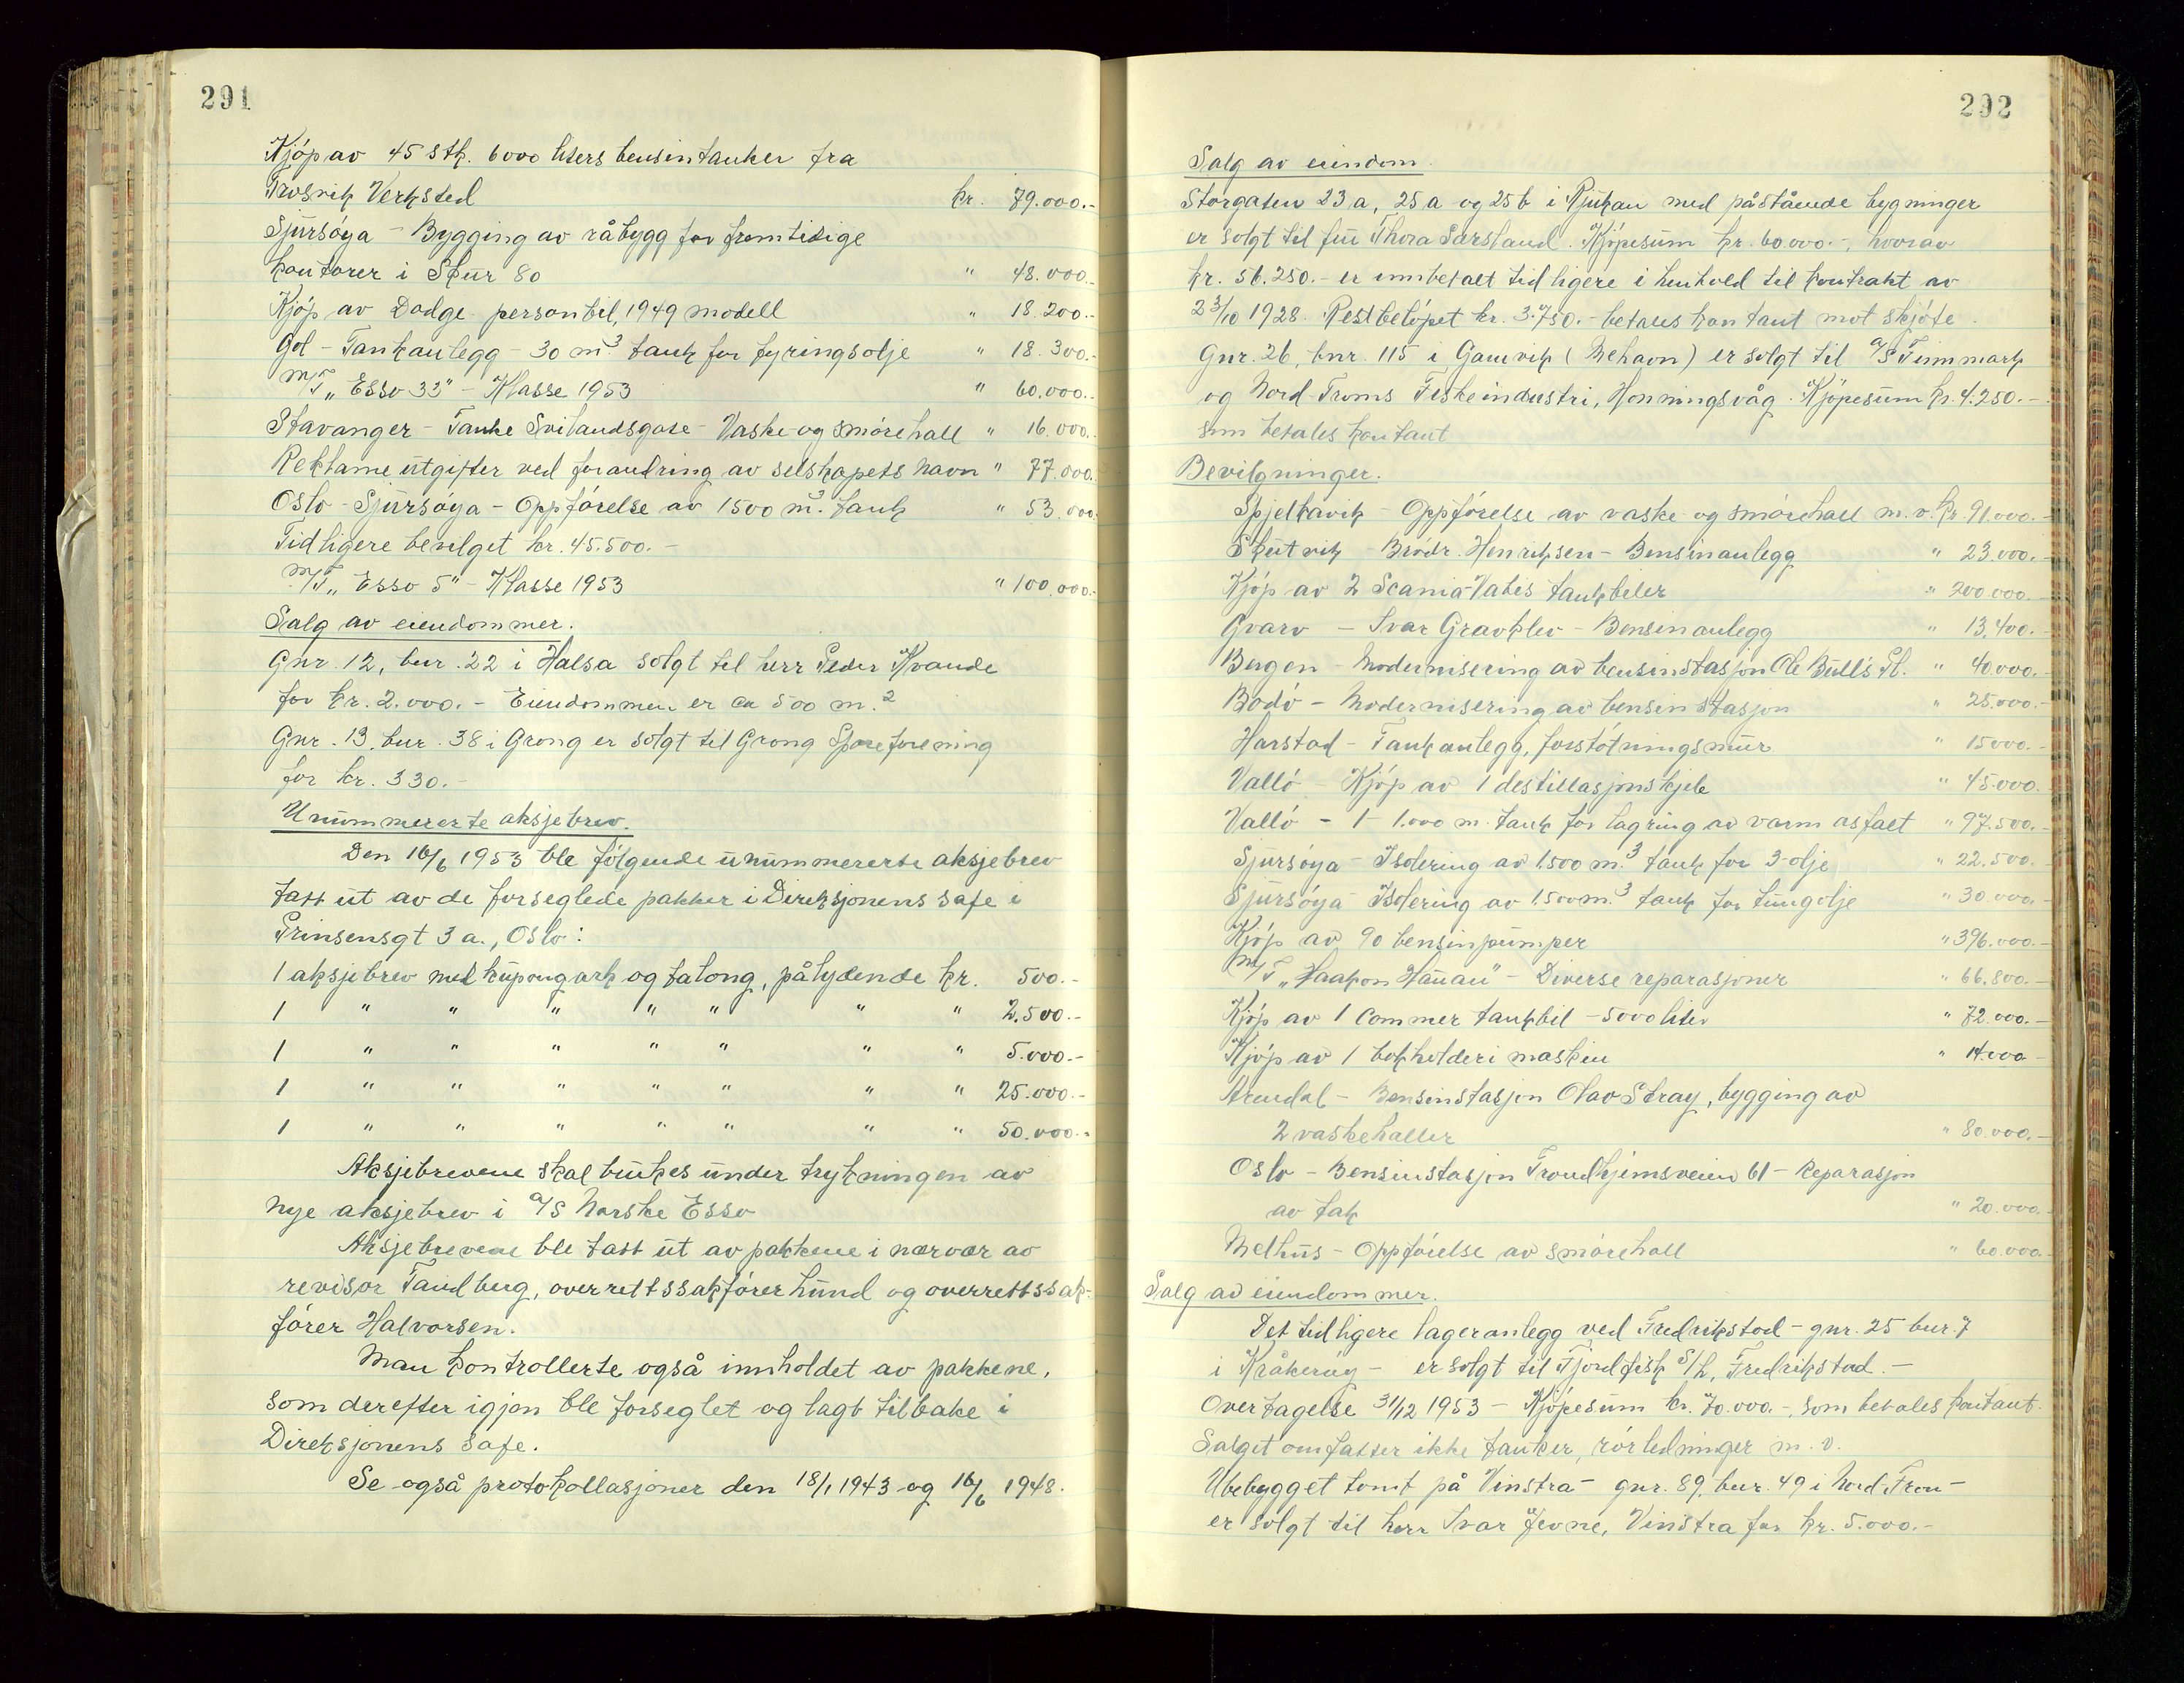 291
Kjöp av 45 stk. 6000 liters bensintanker fra
Trosvik Verksted kr. 79.000.-
Sjursöya - Bygging av råbygg for fremtidige
kontorer i Skur 80 " 48.000.-
Kjöp av Dodge personbil, 1949 modell " 18.200.-
Gol - Tankanlegg - 30 m³ tank for fyringsolje " 18.300.-
M/T „Esso 33" - Klasse 1953 " 60.000.-
Stavanger - Tanke Svilandsgate - Vaske- og smörehall " 16.000.-
Reklameutgifter ved forandring av selskapets navn " 77.000.
Oslo - Sjursöya - Oppförelse av 1500 m³ tank " 53.000.
Tidligere bevilget kr. 45.500.-
M/T „Esso 5" - Klasse 1953 " 100.000.-
Salg av eiendommer.
Gnr. 12, bnr. 22 i Halsa solgt til herr Peder Kvande
for kr. 2.000.- Eiendommen er ca 500 m.²
Gnr. 13, bnr. 38 i Grong er solgt til Grong Spareforening
for kr. 330.-
Unummererte aksjebrev.
Den 16/6 1953 ble fölgende unummererte aksjebrev
tatt ut av de forseglede pakker i Direksjonens safe i
Prinsensgt 3 a., Oslo:
1 aksjebrev med kupongark og talong, pålydende kr. 500.-
1 " " " " " " " 2.500.-
1 " " " " " " " 5.000.-
1 " " " " " " " 25.000.-
1 " " " " " " " 50.000.-
Aksjebrevene skal brukes under trykningen av
nye aksjebrev i A/S Norske Esso
Aksjebrevene ble tatt ut av pakkene i nærvær av
revisor Tandberg, overrettssakförer Lund og overrettssak-
förer Halvorsen.
Man kontrollerte også innholdet av pakkene,
som derefter igjen ble forseglet og lagt tilbake i
Direksjonens safe.
Se også protokollasjoner den 18/1 1943 og 16/6 1948.
292
Salg av eiendom.
Storgaten 23 a, 25 a og 25 b i Rjukan med påstående bygninger
er solgt til fru Thora Sarsland. Kjöpesum kr. 60.000.-, hvorav
kr. 56.250.- er innbetalt tidligere i henhold til kontrakt av
23/10 1928. Restbelöpet kr. 3.750.- betales kontant mot skjöte.
Gnr. 26, bnr. 115 i Gamvik (Mehavn) er solgt til A/S Finnmark
og Nord-Troms Fiskeindustri, Honningsvåg. Kjöpesum kr. 4.250.-
som betales kontant
Bevilgninger.
Spjelkavik - Oppförelse av vaske og smörehall m.v. kr. 91.000.-
Skutvik - Brödr. Henriksen - Bensinanlegg " 23.000.-
Kjöp av 2 Scania-Vabis tankbiler " 200.000.-
Gvarv - Ivar Gravklev - Bensinanlegg " 13.400.-
Bergen - Modernisering av bensinstasjon Ole Bull's Pl. " 40.000.-
Bodö - Modernisering av bensinstasjon " 25.000.-
Harstad - Tankanlegg, forstötningsmur " 15000.-
Vallö - Kjöp av 1 destillasjonskjele " 45.000.
Vallö - 1 - 1.000 m. tank for lagring av varm asfalt " 97.500.-
Sjursöya - Isolering av 1.500 m.³ tank for 3-olje " 22.500.-
Sjursöya - Isolering av 1.500 m.³ tank for tungolje " 30.000.-
Kjöp av 90 bensinpumper " 396.000.-
M/T „Haakon Hauan" - Diverse reparasjoner " 66.800.-
Kjöp av 1 Commer tankbil - 5000 liter " 72.000.-
Kjöp av 1 bokholderi maskin " 14.000 -
Arendal - Bensinstasjon Olav Stray, bygging av
2 vaskehaller " 80.000.-
Oslo - Bensinstasjon Trondhjemsveien 61 - Reparasjon
av tak " 20.000.-
Melhus - Oppförelse av smörehall " 60.000.-
Salg av eiendommer.
Det tidligere lageranlegg ved Fredrikstad - gnr. 25 bnr. 7
i Kråkeröy - er solgt til Fjordfisk S/L, Fredrikstad. -
Overtagelse 31/12 1953 - Kjöpesum kr. 70.000.-, som betales kontant.
Salget omfatter ikke tanker, rörledninger m.v.
Ubebygget tomt på Vinstra - gnr. 89, bnr. 49 i Nord-Fron -
er solgt til herr Ivar Jevne, Vinstra for kr. 5.000.-